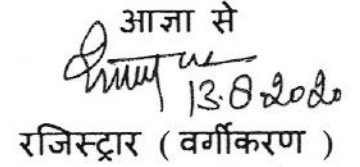 आज्ञा से
13.8.2020
रजिस्ट्रार ( वर्गीकरण )